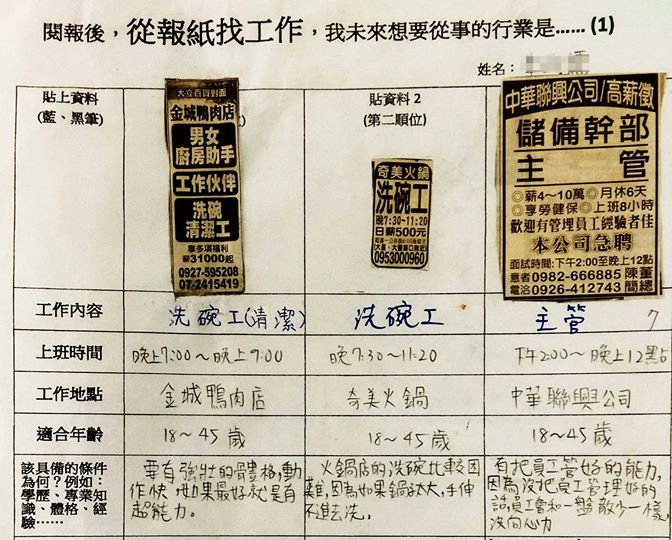 閱報後，從報紙找工作，我未來想要從事的行業是……(1)
姓名：
貼上資料
(藍、黑筆)
大立百貨對面
金城鴨肉店
男女
廚房助手
工作伙伴
洗碗
清潔工
享多項福利
薪31000起
0927-595208
07-2415419
貼資料2
(第二順位)
奇美火鍋
洗碗工
晚7:30~11:20
日薪500元
0953000960
中華聯興公司/高薪徵
儲備幹部
主管
◎薪4~10萬◎月休6天
◎享勞健保◎上班8小時
歡迎有管理員工經驗者佳
本公司急聘
面試時間:下午2:00至晚上12點
意者0982-666885陳董
電洽0926-412743簡總
工作內容 洗碗工(清潔) 洗碗工 主管 7
上班時間 晚上7:00~晚上9:00 晚7:30~11:20 下午2:00~晚上12點
工作地點 金城鴨肉店 奇美火鍋 中華聯興公司
適合年齡 18~45歲 18~45歲 18~45歲
該具備的條件
為何？例如：
學歷、專業知
識、體格、經
驗……
要有強壯的骨體格,動
作快,如果最好就是有
超能力。
火鍋店的洗碗比較困
難,因為如果鍋子太大,手伸
不進去洗。
有把員工管好的能力,
因為沒把員工管理好的
話,員工會和一盤散沙一樣,
沒向心力